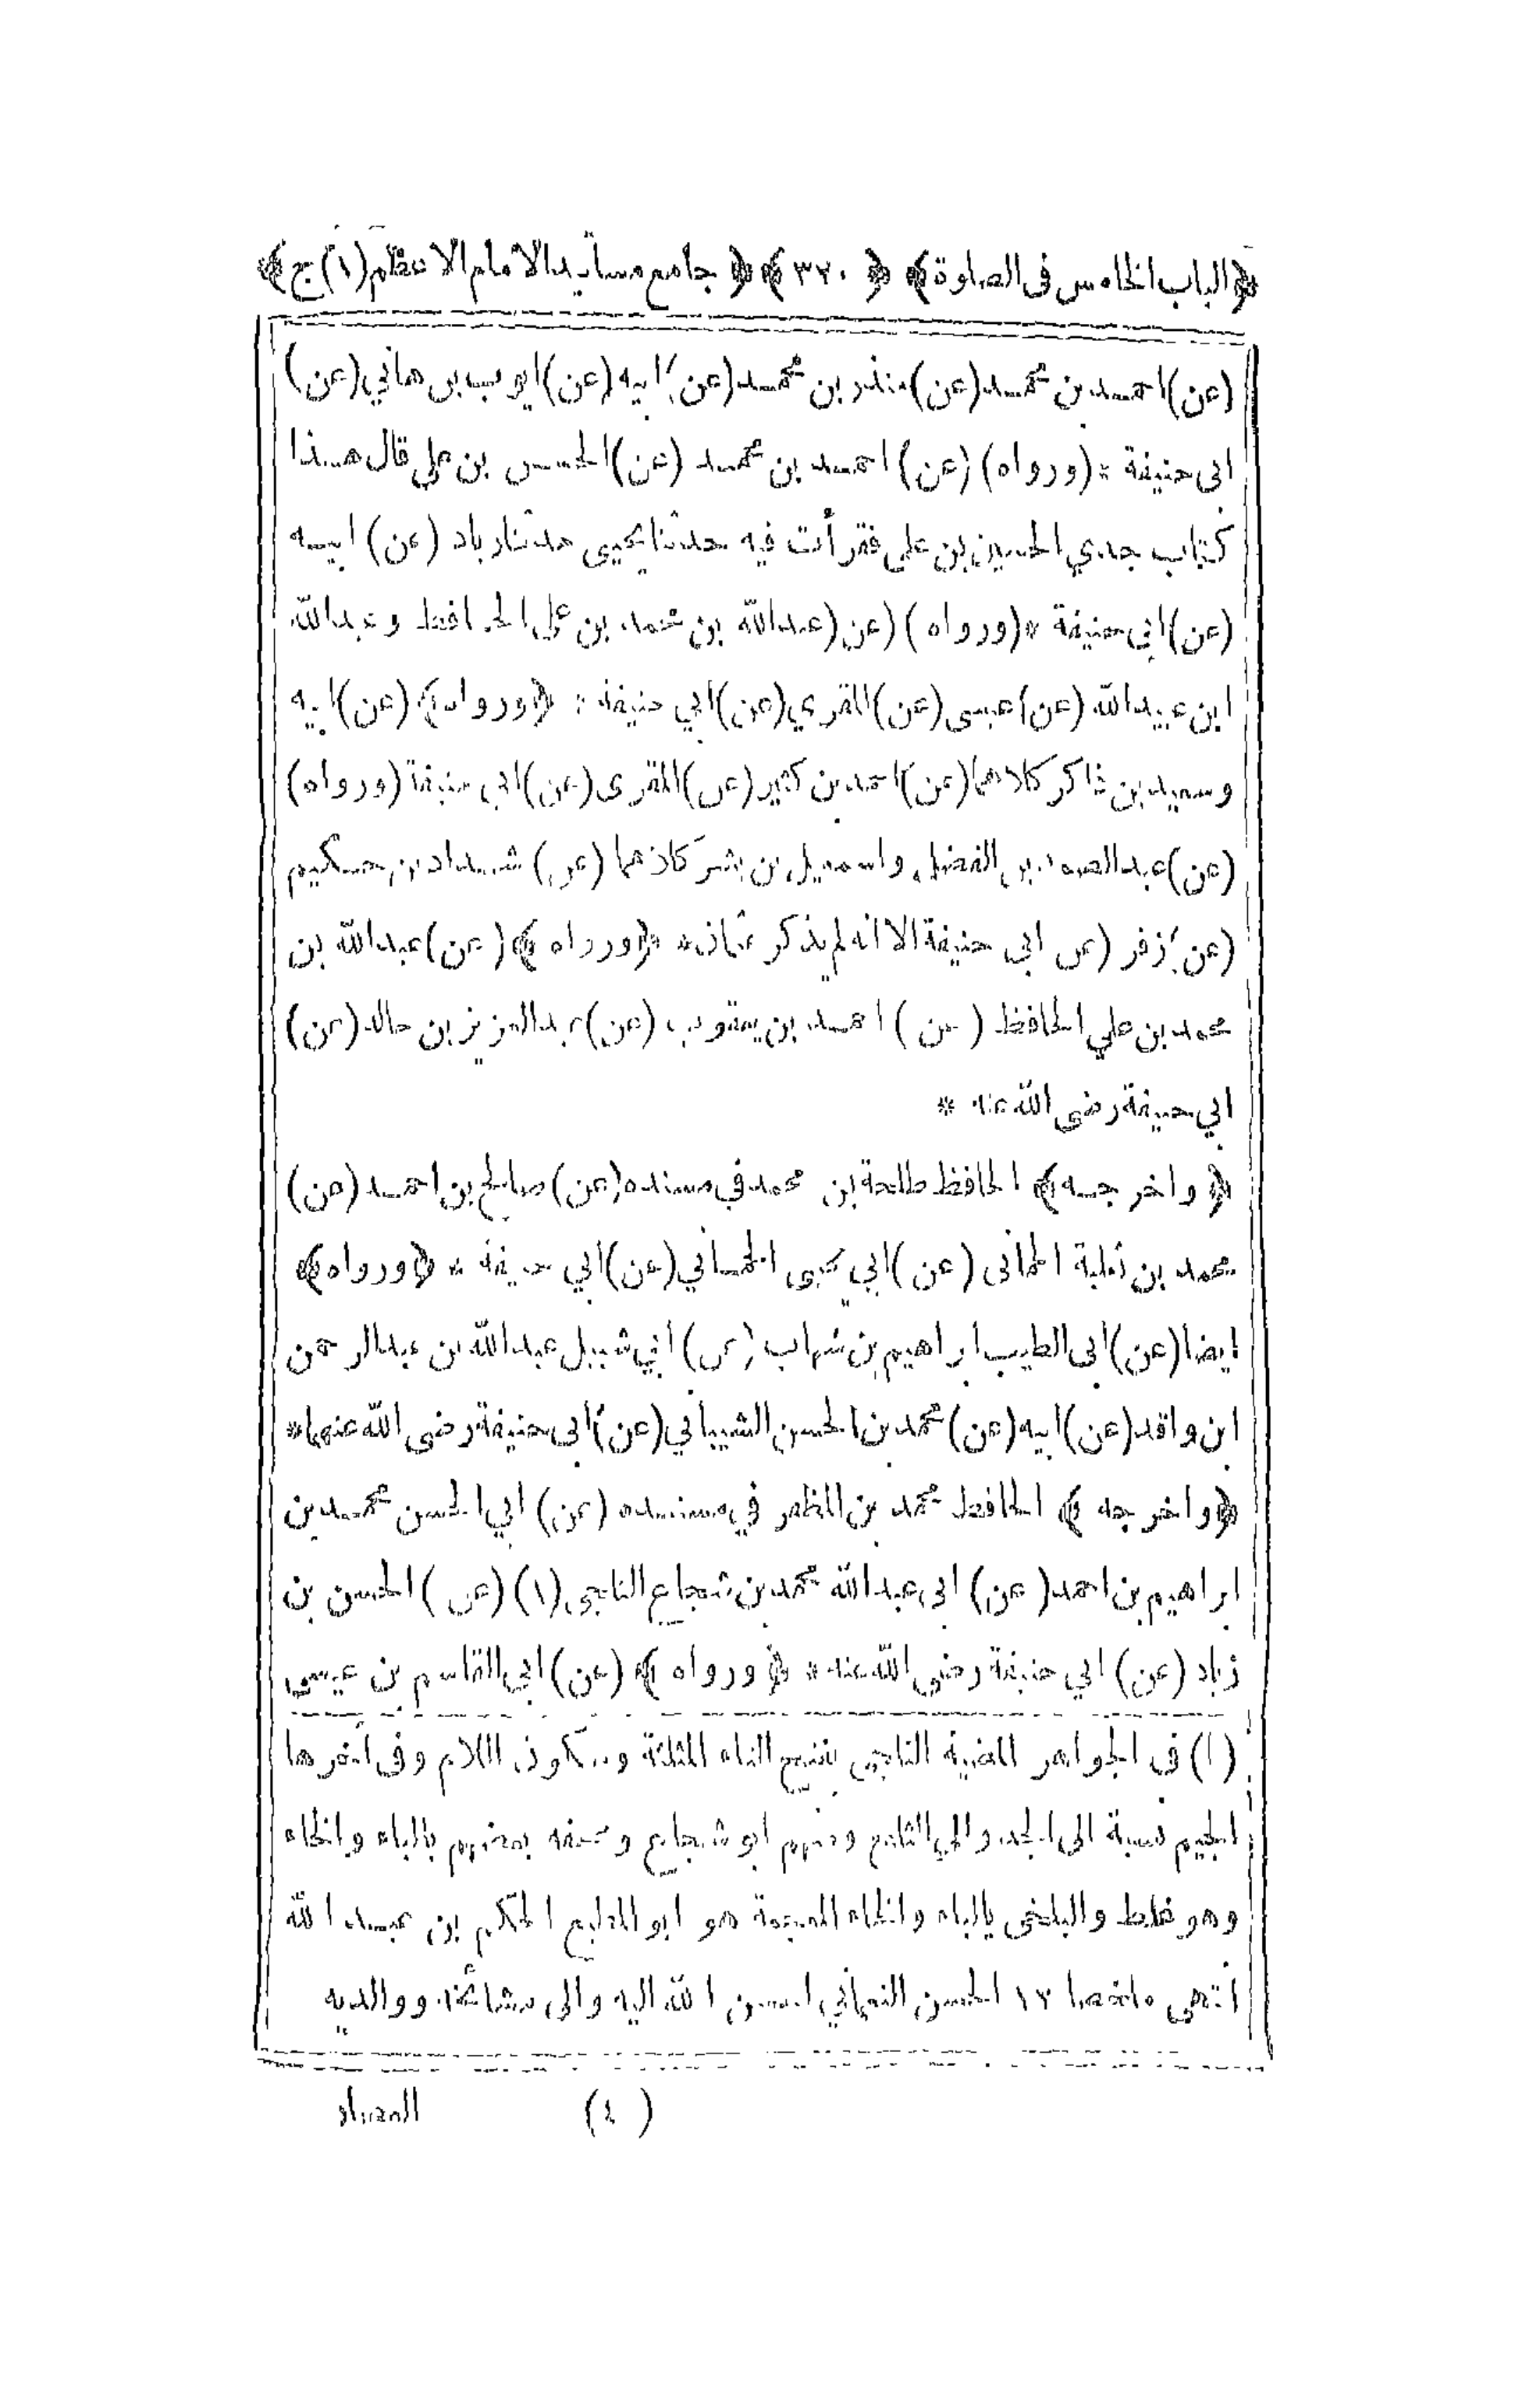 ﴿الباب الخامس فى الصلوة﴾ ﴿٣٢٠﴾ ﴿جامع مسانيد الامام الاعظم (١) ج﴾
(عن) احمد بن محمد (عن) منذر بن محمد (عن) ابيه (عن) ايوب بن هاني (عن)
ابى حنيفة * (ورواه) (عن) احمد بن محمد (عن) الحسين بن علي قال هذا
كتاب جدي الحسين بن علي فقرأت فيه حدثنا يحيى حدثنا زياد (عن) ابيه
(عن) ابى حنيفة * (ورواه) (عن) عبدالله بن محمد بن علي الحافظ وعبدالله
ابن عبيدالله (عن) عيسى (عن) المقري (عن) ابي حنيفة * ﴿ورواه﴾ (عن) ابيه
وسعيد بن ذاكر كلاهما (عن) احمد بن كثير (عن) المقرى (عن) ابى حنيفة (ورواه)
(عن) عبدالصمد بن الفضل واسمعيل بن بشر كلاهما (عن) شداد بن حكيم
(عن) زفر (عن) ابي حنيفة الا انه لم يذكر * ﴿ورواه﴾ (عن) عبدالله بن
محمد بن علي الحافظ (عن) احمد بن يعقوب (عن) عبدالعزيز بن خالد (عن)
ابي حنيفة رضى الله عنه *
﴿واخرجه﴾ الحافظ طلحة بن محمد في مسنده (عن) صالح بن احمد (عن)
محمد بن ثعلبة الحمانى (عن) ابي يحيى الحماني (عن) ابي حنيفة * ﴿ورواه﴾
ايضا (عن) ابى الطيب ابراهيم بن شهاب (عن) ابي شبيل عبدالله بن عبدالرحمن
ابن واقد (عن) ابيه (عن) محمد بن الحسن الشيباني (عن) ابى حنيفة رضى الله عنهما *
﴿واخرجه﴾ الحافظ محمد بن المظفر في مسنده (عن) ابي الحسن محمد بن
ابراهيم بن احمد (عن) ابى عبدالله محمد بن شجاع الثلجى (١) (عن) الحسن بن
زياد (عن) ابي حنيفة رضى الله عنه * ﴿ورواه﴾ (عن) ابي القاسم بن عيسى
(١) فى الجواهر المضية الثلجى بفتح الثاء المثلثة وسكون اللام وفى آخرها
الجيم نسبة الى الجد والي الثلج ومنهم ابو شجاع وصحفه بعضهم بالباء والخاء
وهو غلط والبلخى بالباء والخاء المعجمة هو ابو المطيع الحكم بن عبد الله
انتهى ملخصا ١٢ الحسن النعماني احسن الله اليه والى مشائخه ووالديه
(٤)